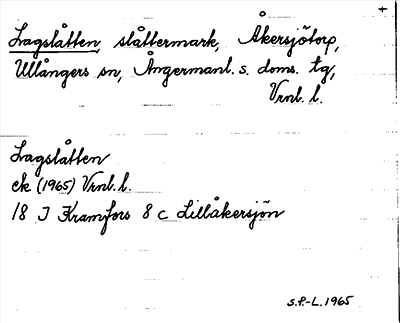 +
Lagslåtten, slåttermark, Åkersjötorp,
Ullångers sn, Ångermanl. s. doms. tg,
Vrnl. l.
Lagslåtten
ek (1965) Vrnl. l.
18 J Kramfors 8 c Lillåkersjön
S.P.-L. 1965